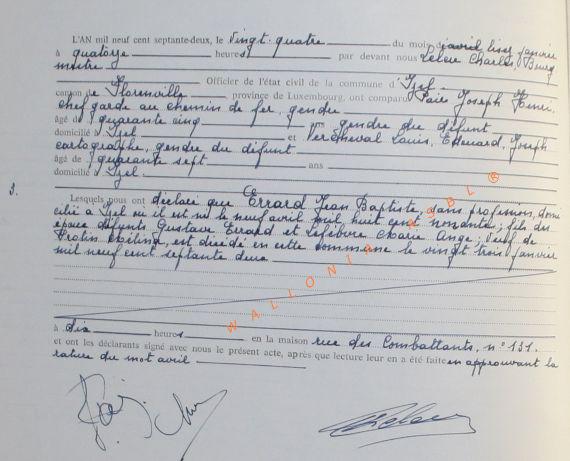 L'AN mil neuf cent septante-deux, le vingt-quatre du mois d'avril lisez janvier
à quatorze heures par devant nous Leleu Charles, Bourg
mestre
Officier de l'état civil de la commune d'Izel
canton de Florenville province de Luxembourg, ont comparu Joseph Henri,
chef garde au chemin de fer, gendre
âgé de quarante cinq gendre du défunt
domicilié à Izel et Vercheval Louis, Edouard, Joseph
cartographe, gendre du défunt
âgé de quarante sept ans
domicilié à Izel
3.
Lesquels nous ont déclaré que Errard Jean Baptiste, sans profession, domi
cilié à Izel où il est né le neuf avril mil huit cent nonante; fils des
époux défunts Gustave Errard et Lefèbvre Marie Ange; veuf de
est décédé en cette commune le vingt trois janvier
mil neuf cent septante deux
à dix heures en la maison rue des Combattants, n° 131.
et ont les déclarants signé avec nous le présent acte, après que lecture leur en a été faite en approuvant la
rature du mot avril
WALLONIA ASBL ®